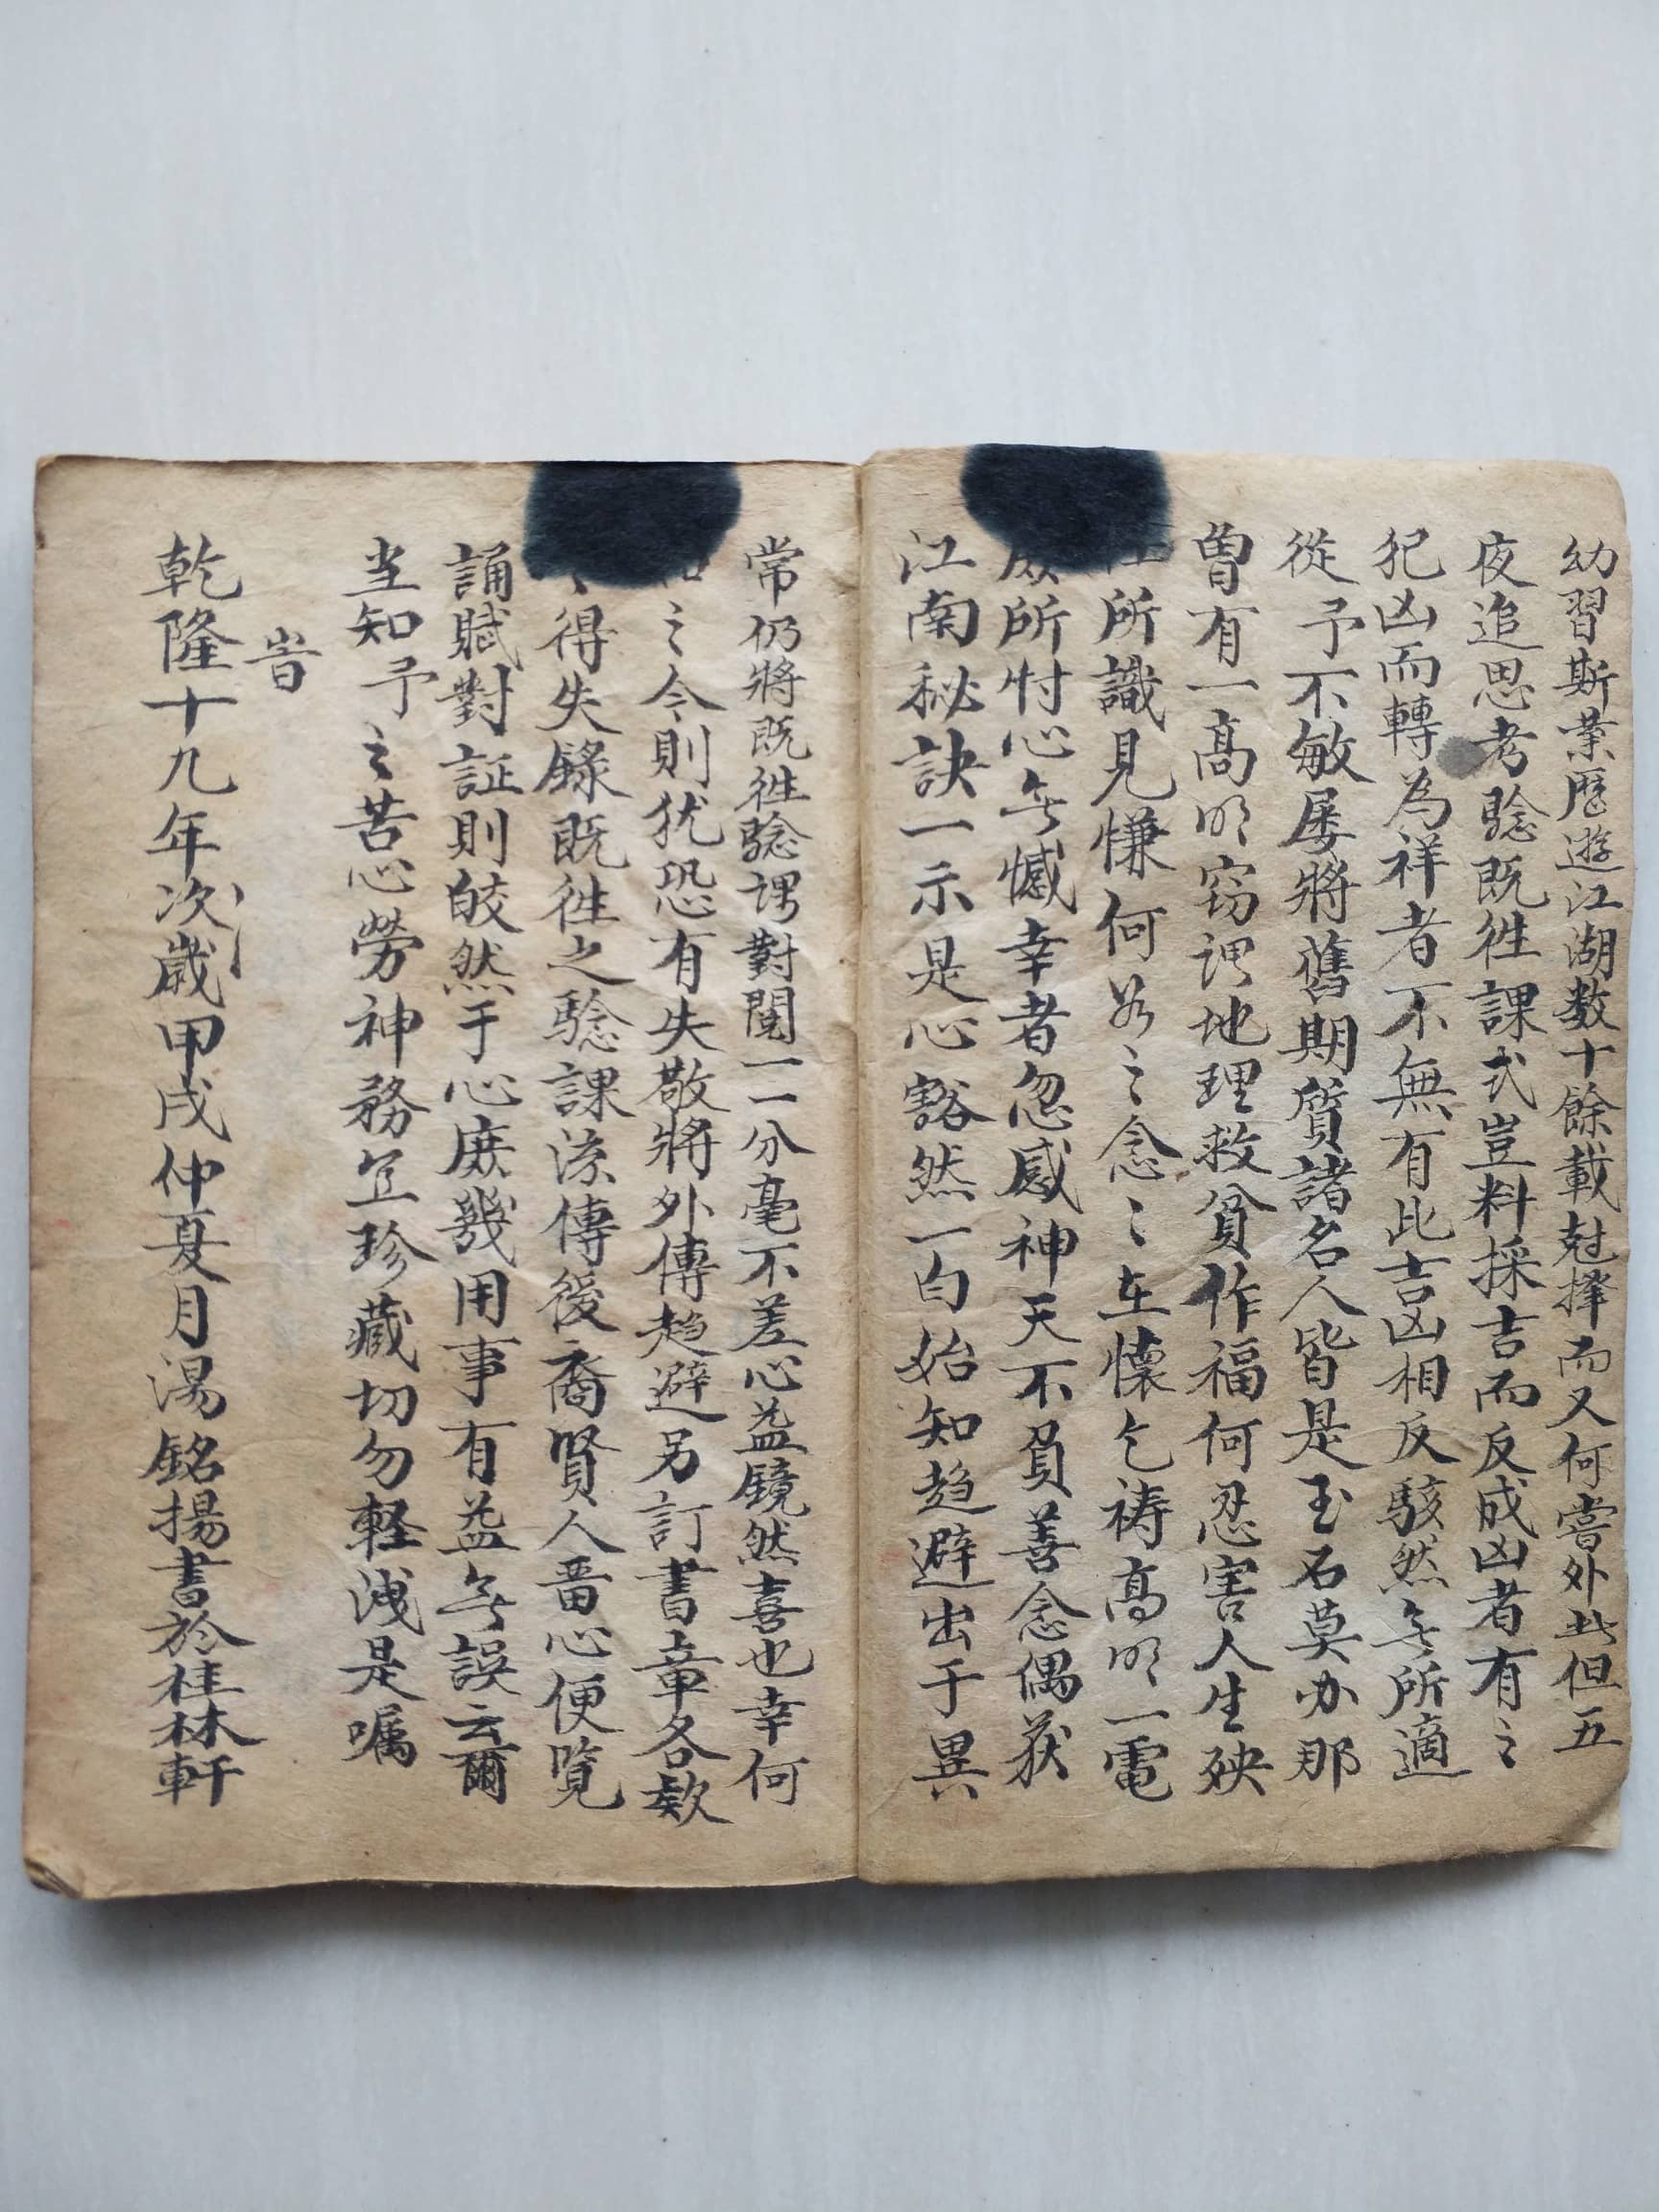 幼習斯業歷遊江湖数十餘載尅擇而又何嘗外此但五
夜追思考騐既徃課式豈料採吉而反成凶者有之
犯凶而轉為祥者不無有此吉凶相反駭然無所適
從予不敏屡將舊期質諸名人皆是玉石莫办那
曾有一高明窃謂地理救貧作福何忍害人生殃
所識見慊何如之念之在懷乞禱高明一電
所忖心無憾幸者忽感神天不負善念偶获
江南秘訣一示是心豁然一白始知趋避出于異
常仍將既徃騐課對閱一一分毫不差心益鏡然喜也幸何
之今則犹恐有失敬將外傳趋避另訂書章各欵
得失錄既徃之騐課流傳後裔賢人畨心便覧
誦賦對証則皎然于心庶幾用事有益無誤云爾
当知予之苦心勞神務宜珍藏切勿輕洩是嘱
旹
乾隆十九年次歲甲戌仲夏月湯銘揚書於桂林軒